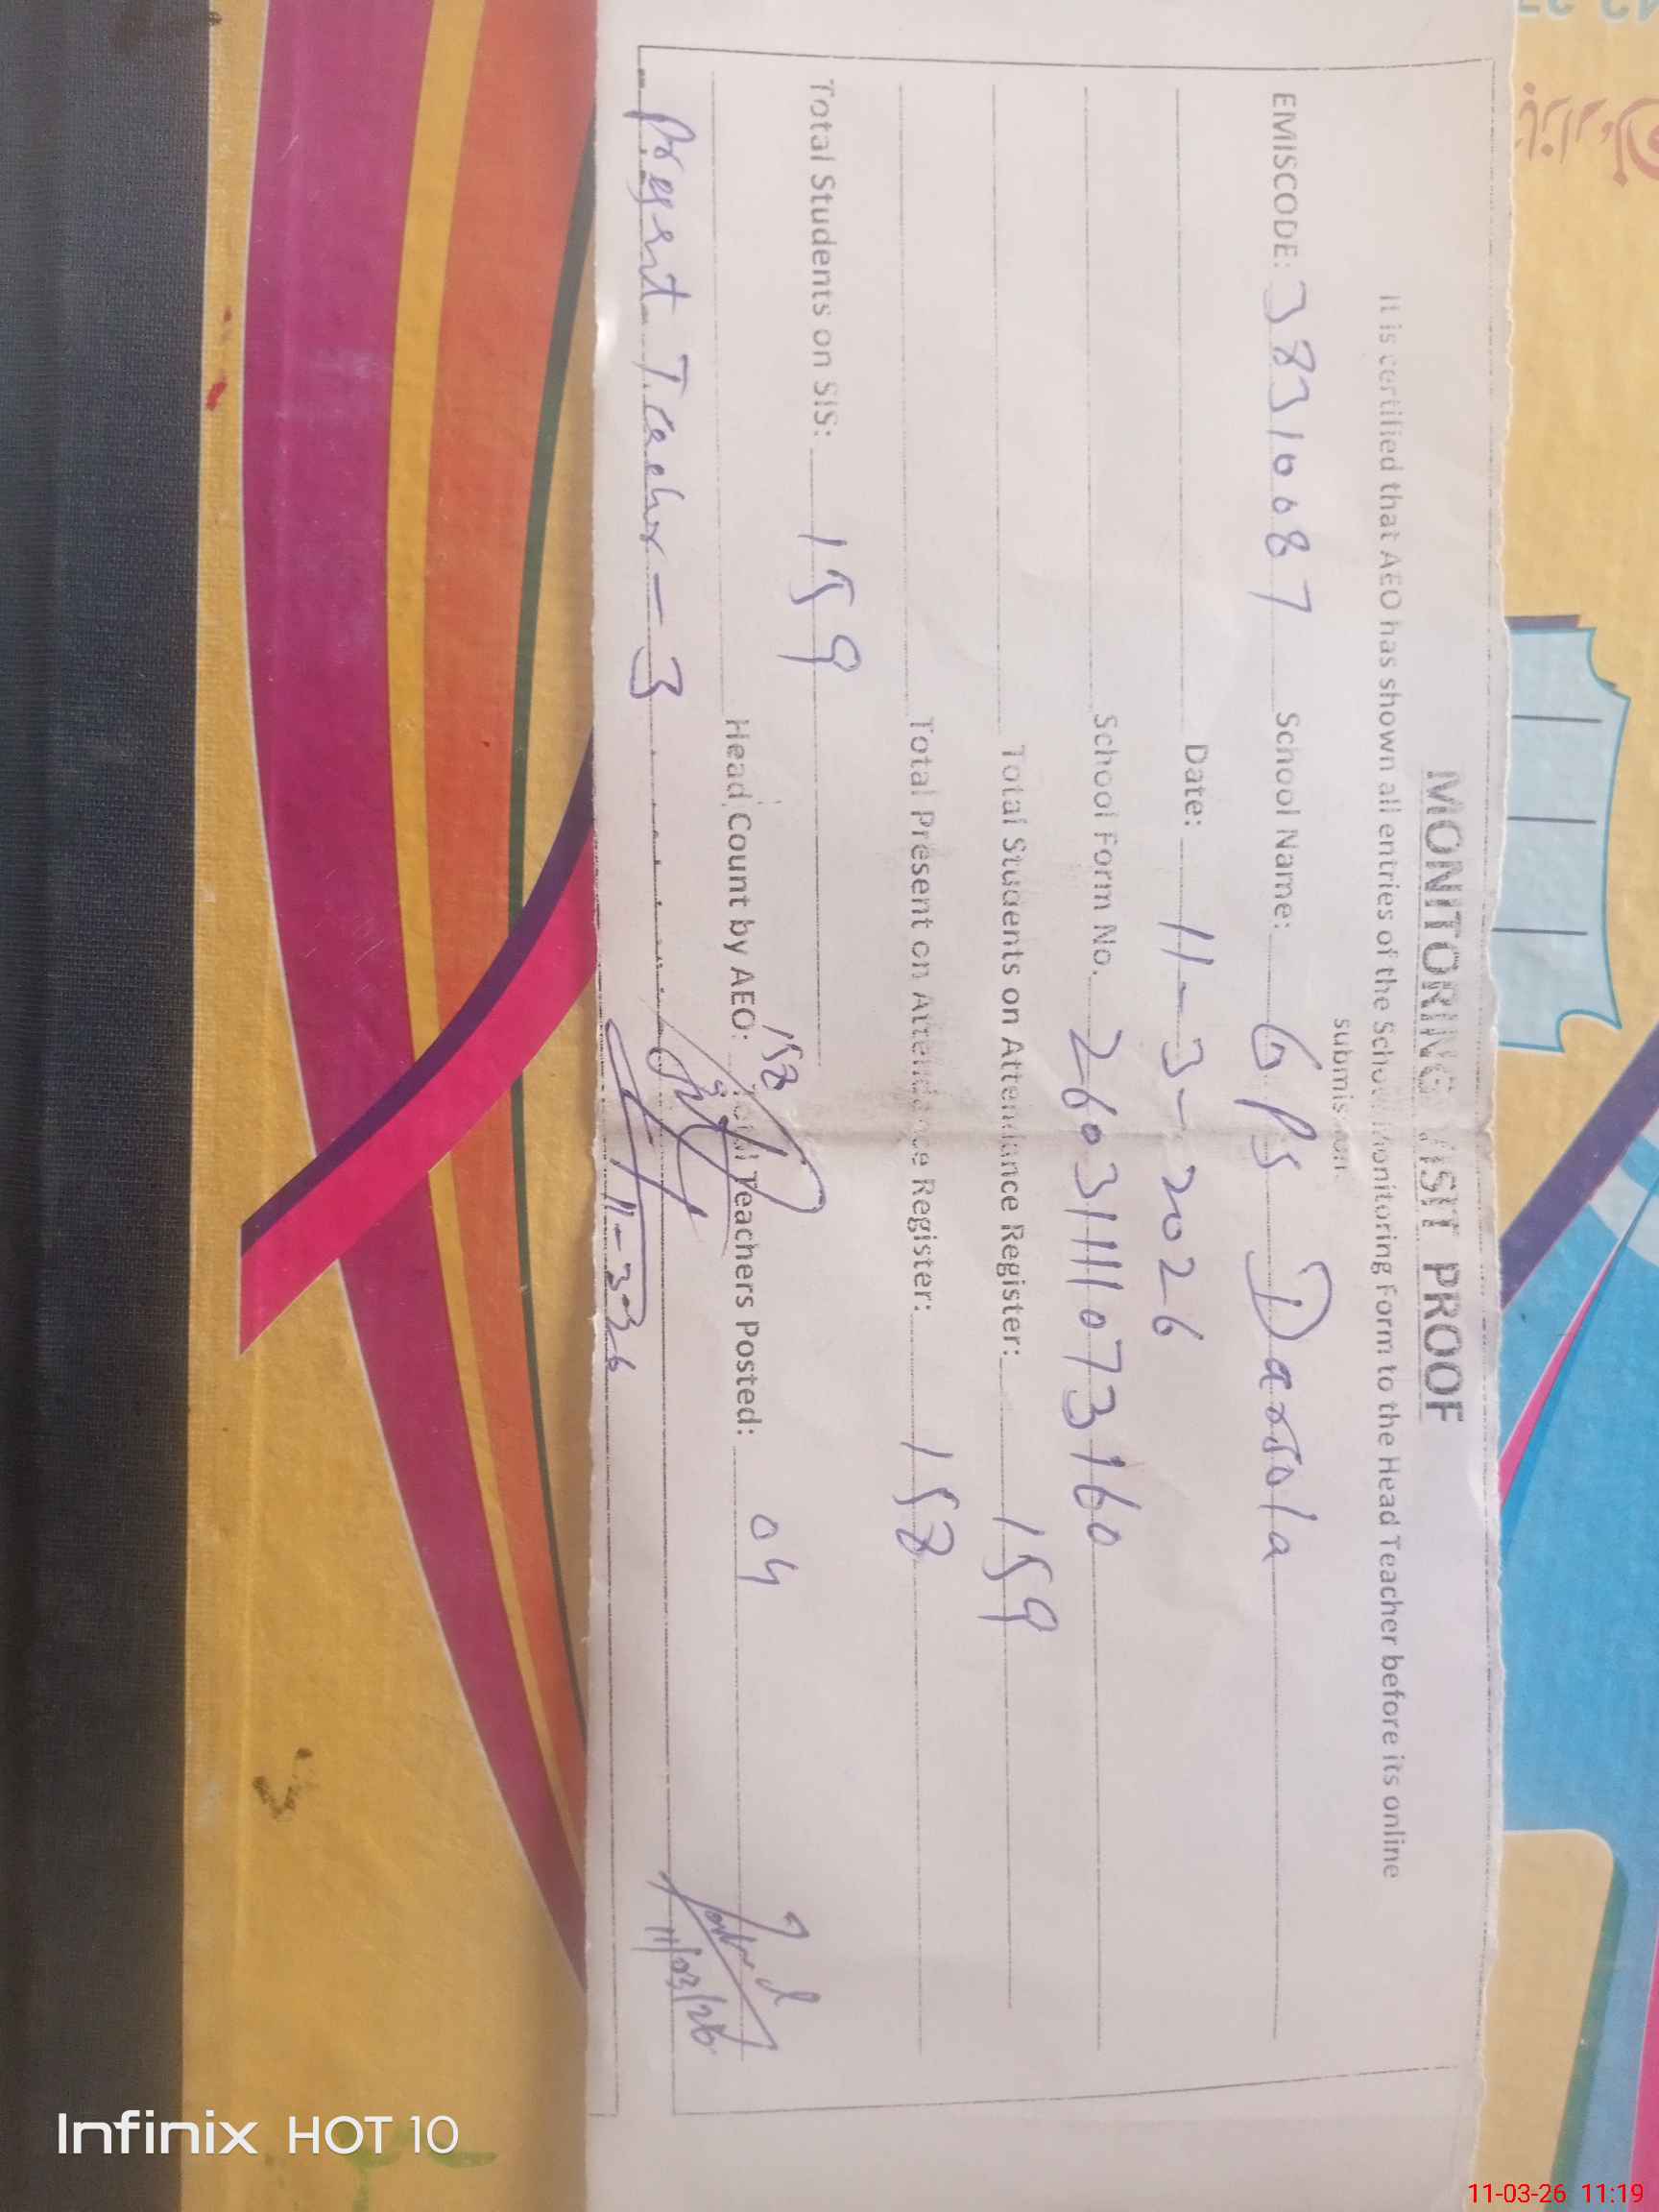 MONITORING VISIT PROOF
It is certified that AEO has shown all entries of the School Monitoring Form to the Head Teacher before its online
submission.
EMISCODE: 38310087 School Name: GPS Darsola
Date: 11-3-2026
School Form No. 26031111073160
Total Students on Attendance Register: 159
Total Present on Attendance Register: 158
Total Students on SIS: 159
Head Count by AEO: 158 Total Teachers Posted: 04
Present Teacher - 3
11-3-26
11/03/26
Infinix HOT 10
11-03-26 11:19